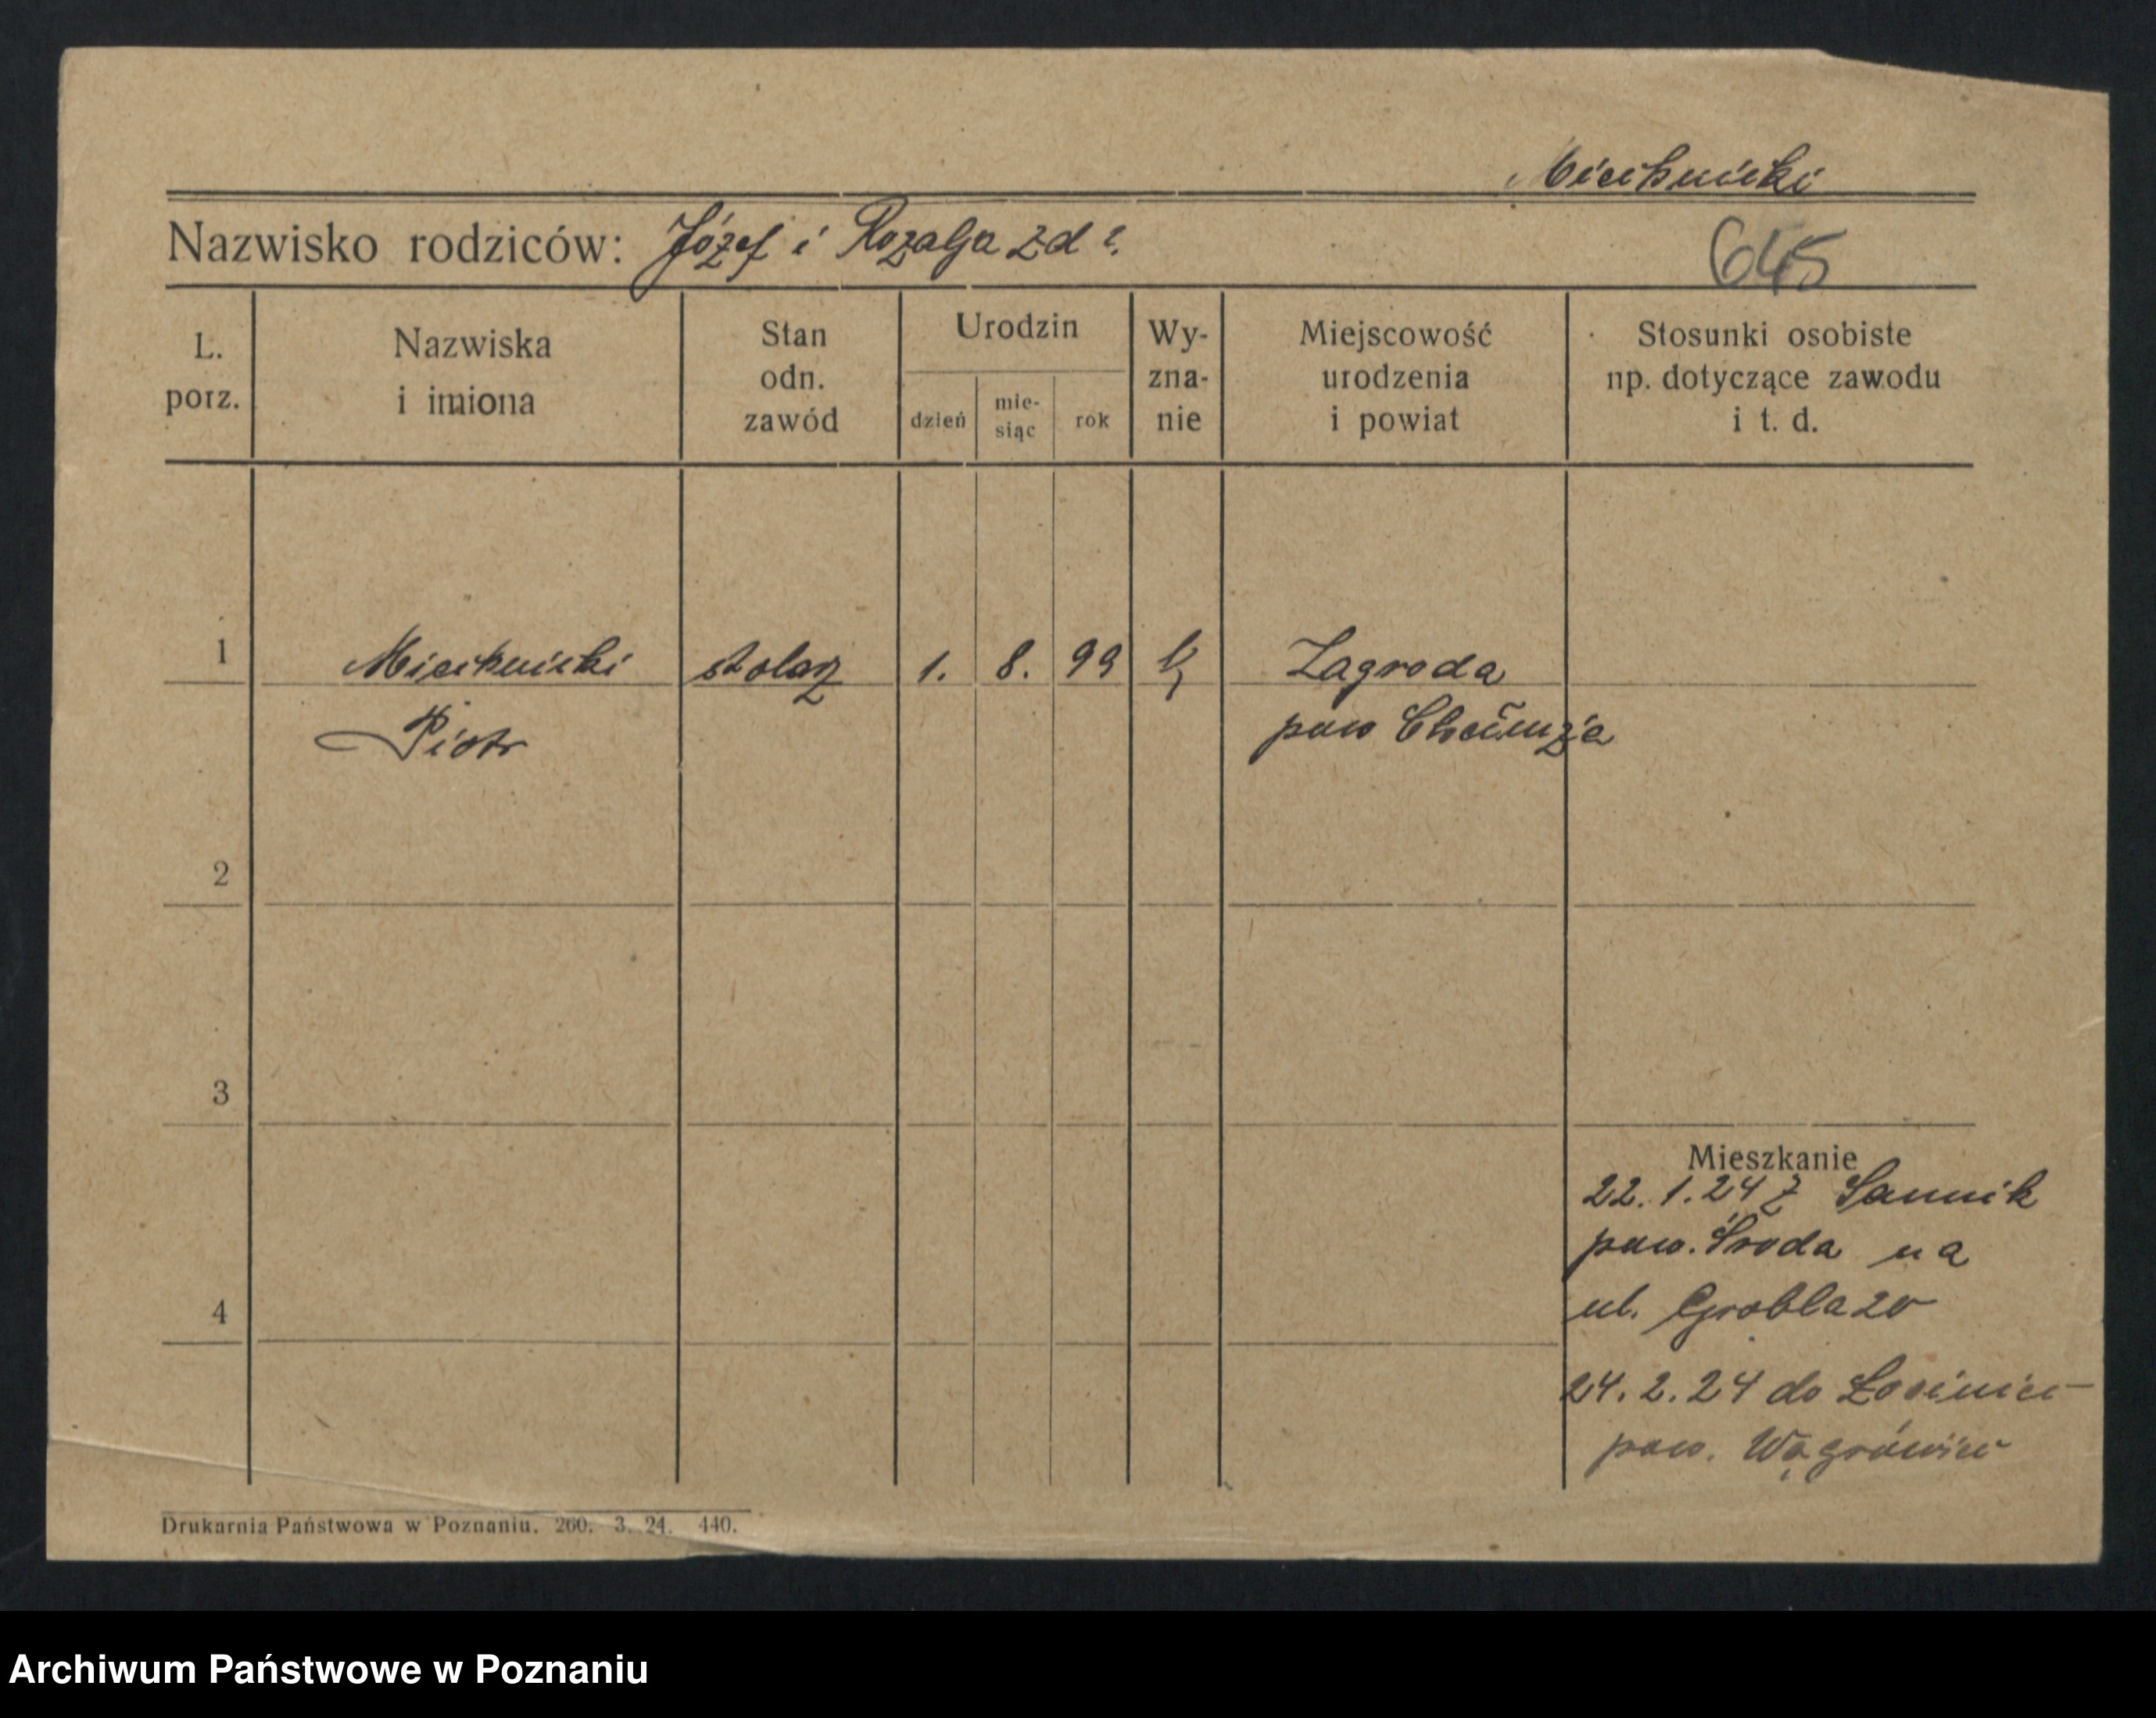 Miecknicki
Nazwisko rodziców: Józef i Rozalja zd ?.
645
L. porz.
Nazwiska i imiona
Stan odn. zawód
Urodzin
dzień
mie-siąc
rok
Wy-zna-nie
Miejscowość urodzenia i powiat
Stosunki osobiste np. dotyczące zawodu i t. d.
1 Miecknicki stolarz 1. 8. 99 Zagroda
Piotr pow
2
3
Mieszkanie
22. 1. 24 z Sannik
pow. Środa na
ul. Grobla 20
4
24. 2. 24 do
pow. Wągrówiec
Drukarnia Państwowa w Poznaniu. 260. 3. 24. 440.
Archiwum Państwowe w Poznaniu